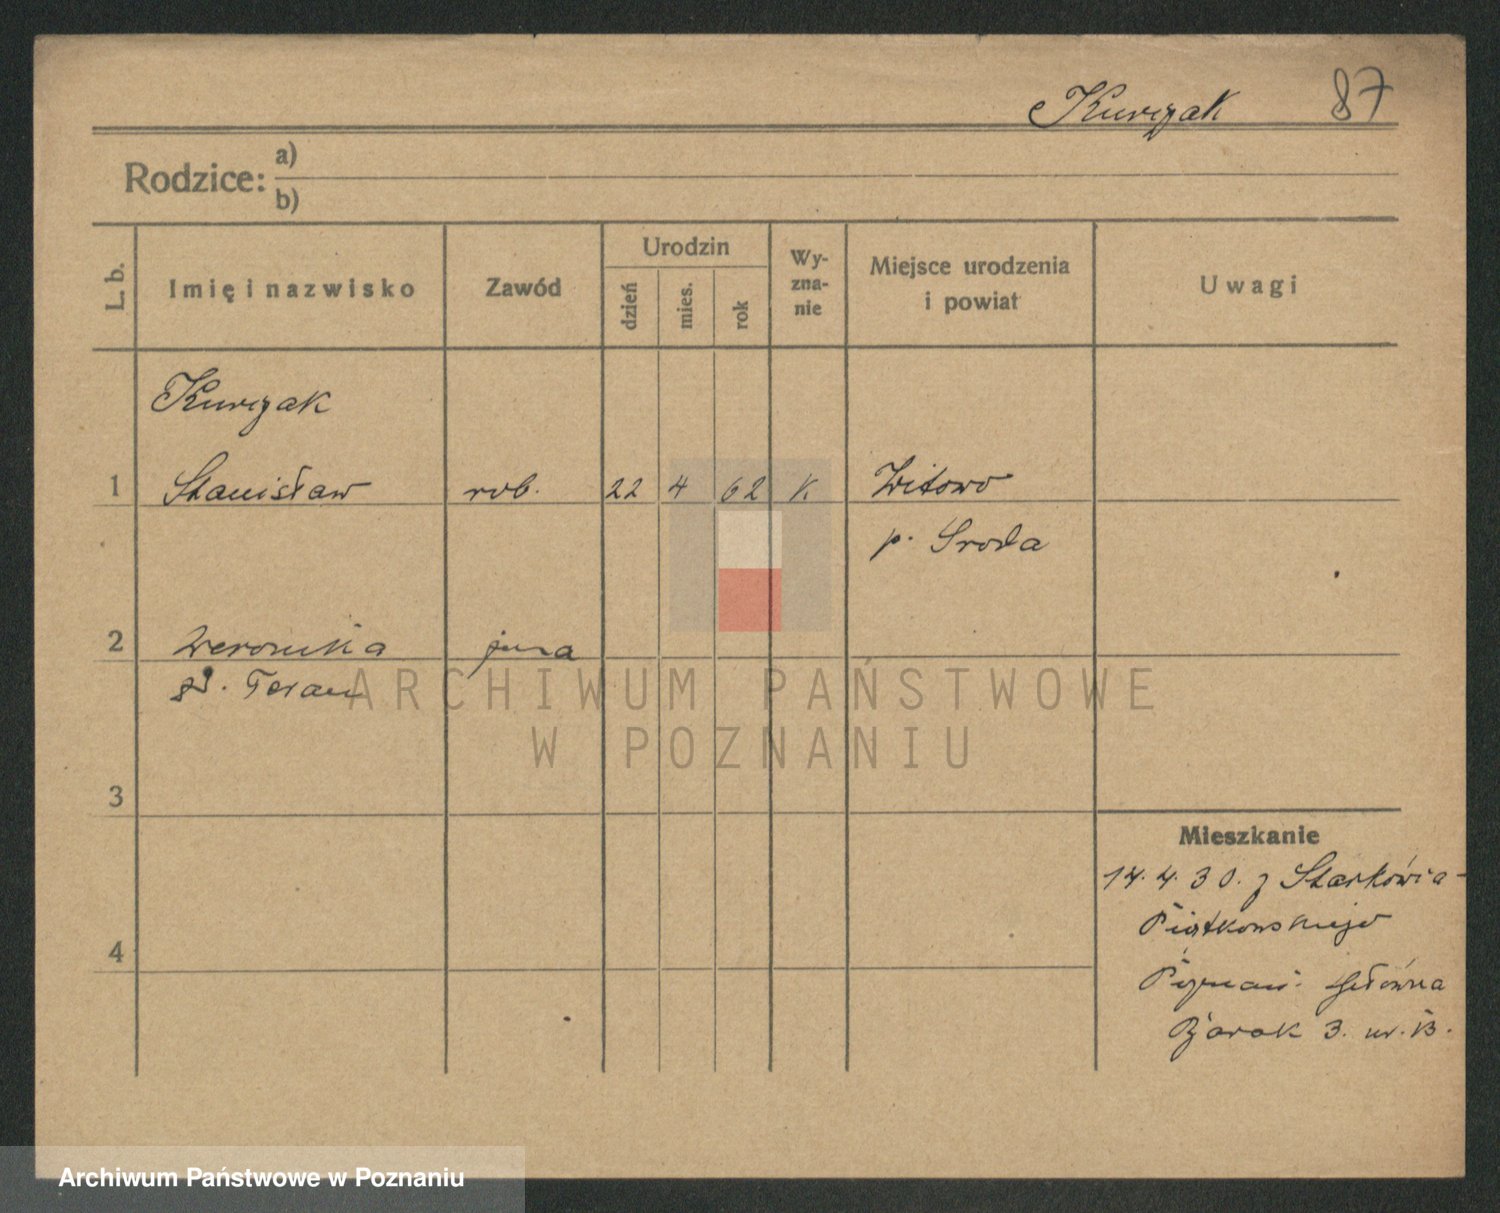 Kurczak 87
Rodzice: a)
b)
L. b. Imię i nazwisko Zawód Urodzin dzień mies. rok Wy-zna-nie Miejsce urodzenia i powiat Uwagi
Kurczak
1 Stanisław rob. 22 4 62 K Witowo
p. Sroda
2 Weronika
3
4
Mieszkanie
14.4.30. z Starkówca-
Piątkowskiego
Poznań. Główna
Barak 3.
ARCHIWUM PAŃSTWOWE
W POZNANIU
Archiwum Państwowe w Poznaniu